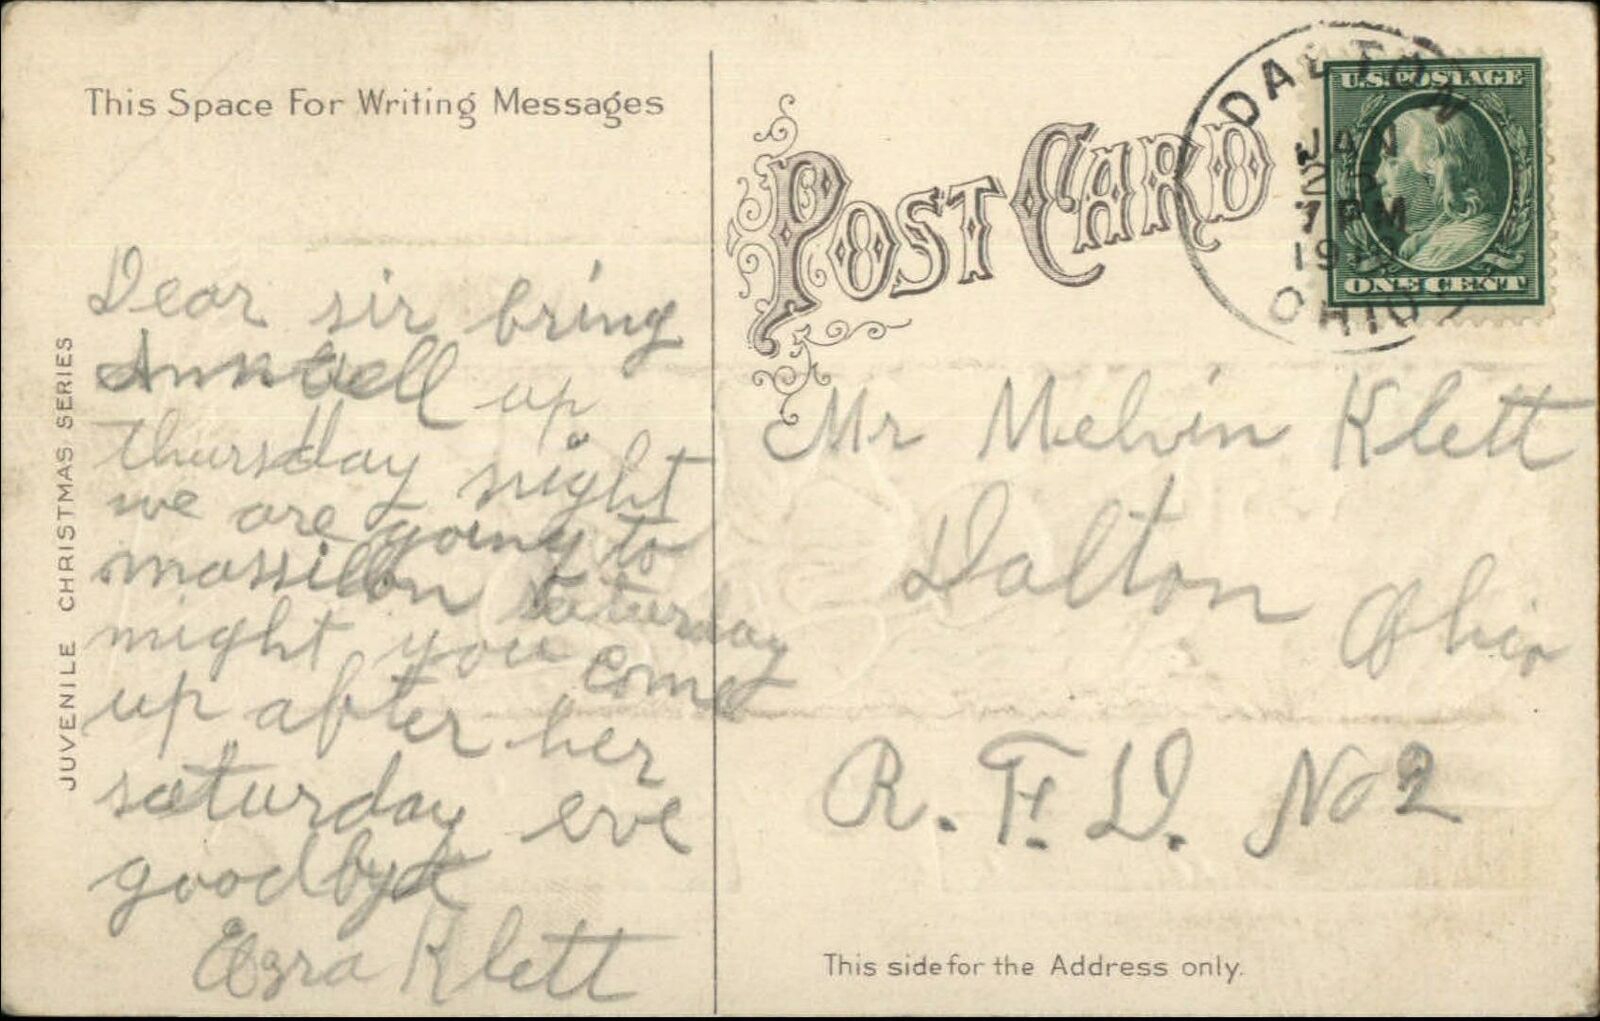 This Space For Writing Messages
Dear sir bring
Annabell up
thursday night
we are going to
massillon saturday
night you come
up after her
saturday eve
goodbye
Ezra Klett
JUVENILE CHRISTMAS SERIES
POST CARD
DALTON
JAN
7 PM
OHIO
U.S. POSTAGE
ONE CENT
Mr Melvin Klett
Dalton Ohio
R. F. D. No 2
This side for the Address only.